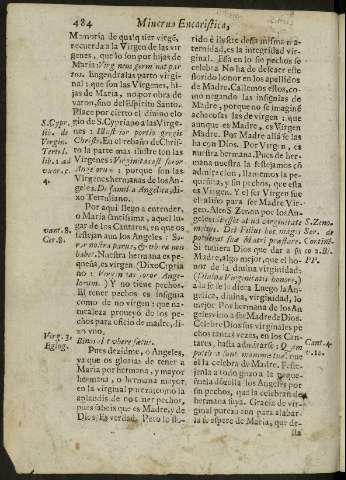 484 Minerva Eucaristica,
Memoria de qualquier virgē,
recuerda a la Virgen de las vir
genes, que lo son por hijas de
Maria: Virginem germinat par
tus. Engendralas parto virgi
nal: que son las Virgenes, hi-
jas de Maria, no por obra de
varon, sino del Espiritu Santo.
Place por cierto el divino elo
gio de S. Cypriano a las Virgē
nes: Illustior portio gregis
Christi. En el rebaño de Chris-
to la parte mas ilustre son las
Virgenes: Virginitas est soror
Angelorum: porque son las
Virgenes hermanas de los An-
geles. De familia Angelica, di-
xo Tertuliano.
Por aqui llego a entender,
o Maria santissima, aquel lu-
gar de los Cantares, en que os
festejan aun los Angeles: So-
ror nostra parva, & ubera non
habet. Nuestra hermana es pe
queña, es virgen. (Dixo Cypria
no: Virginitas soror Ange-
lorum.) Y no tiene pechos.
El tener pechos es insignia
como de no virgen: que na-
turaleza proveyò de los pe-
chos para oficio de madre, di-
xo uno.
Bina, & ubere fœtus.
Pues dezidme, o Angeles,
ya que os gloriais de tener a
Maria por hermana, y mayor
hermana, o hermana mayor
en la virginal pureza: como la
aplaudis de no tener pechos,
pues sabeis que es Madre, y de
Dios. Es verdad. Pero lo ilus-
S. Cypr.
lib. de
Virgin.
Tertul.
lib. 1. ad
uxor. c.
4.
Cant. 8.
Virg. 3.
Eglog.
trido è ilustre de sa misma ma-
ternidad, es la integridad vir-
ginal. Esa en lo sin pechos se
celebra. No ha de deslucir este
florido honor en los apellidos
de Madre. Callemos estos, co-
mo negando las insignias de
Madre, porque no se imagine
achocosas las de virgen: que
aunque es Madre, es Virgen
Madre. Por Madre allà se las
ha con Dios. Por Virgen, es
nuestra hermana. Pues de her-
mana nuestra la festejemos cō
admiracion, llamemosla pe-
queñita, y sin pechos, que esta
es Virgen. Y ese fue siempre
el aliño para ser Madre Vir-
gen. Alen S. Zenon por los An-
geles: Christo ad virginitate
Del Filius hoc magis
poterat suæ Matri præstare.
Si tuviera Dios que dar a su
Madre, algo mejor, que el ho-
nor de la divina virginidad:
(Divinæ Virginitatis honore,)
a ella se le diera. Luego la An-
gelica, divina, virginidad, lo
mejor. Por hermana de los An
gelesvino a su Madre de Dios.
Celebre Dios sus virginales pe
chos tantas vezes, en los Can-
tares, hasta admirarse: Quam
pulchræ sunt mammæ tuæ, que
ella celebra de Madre. Feste-
jenla a todo gozo a la peque-
ñuela donzella los Angeles por
sin pechos, que la celebran de
hermana suya. Gracia de vir-
ginal pureza aun para alabar-
la se espere de Maria, que de-
S. Zeno.
Ser. de
Continē
Cant. 4.
v. 10.
sla